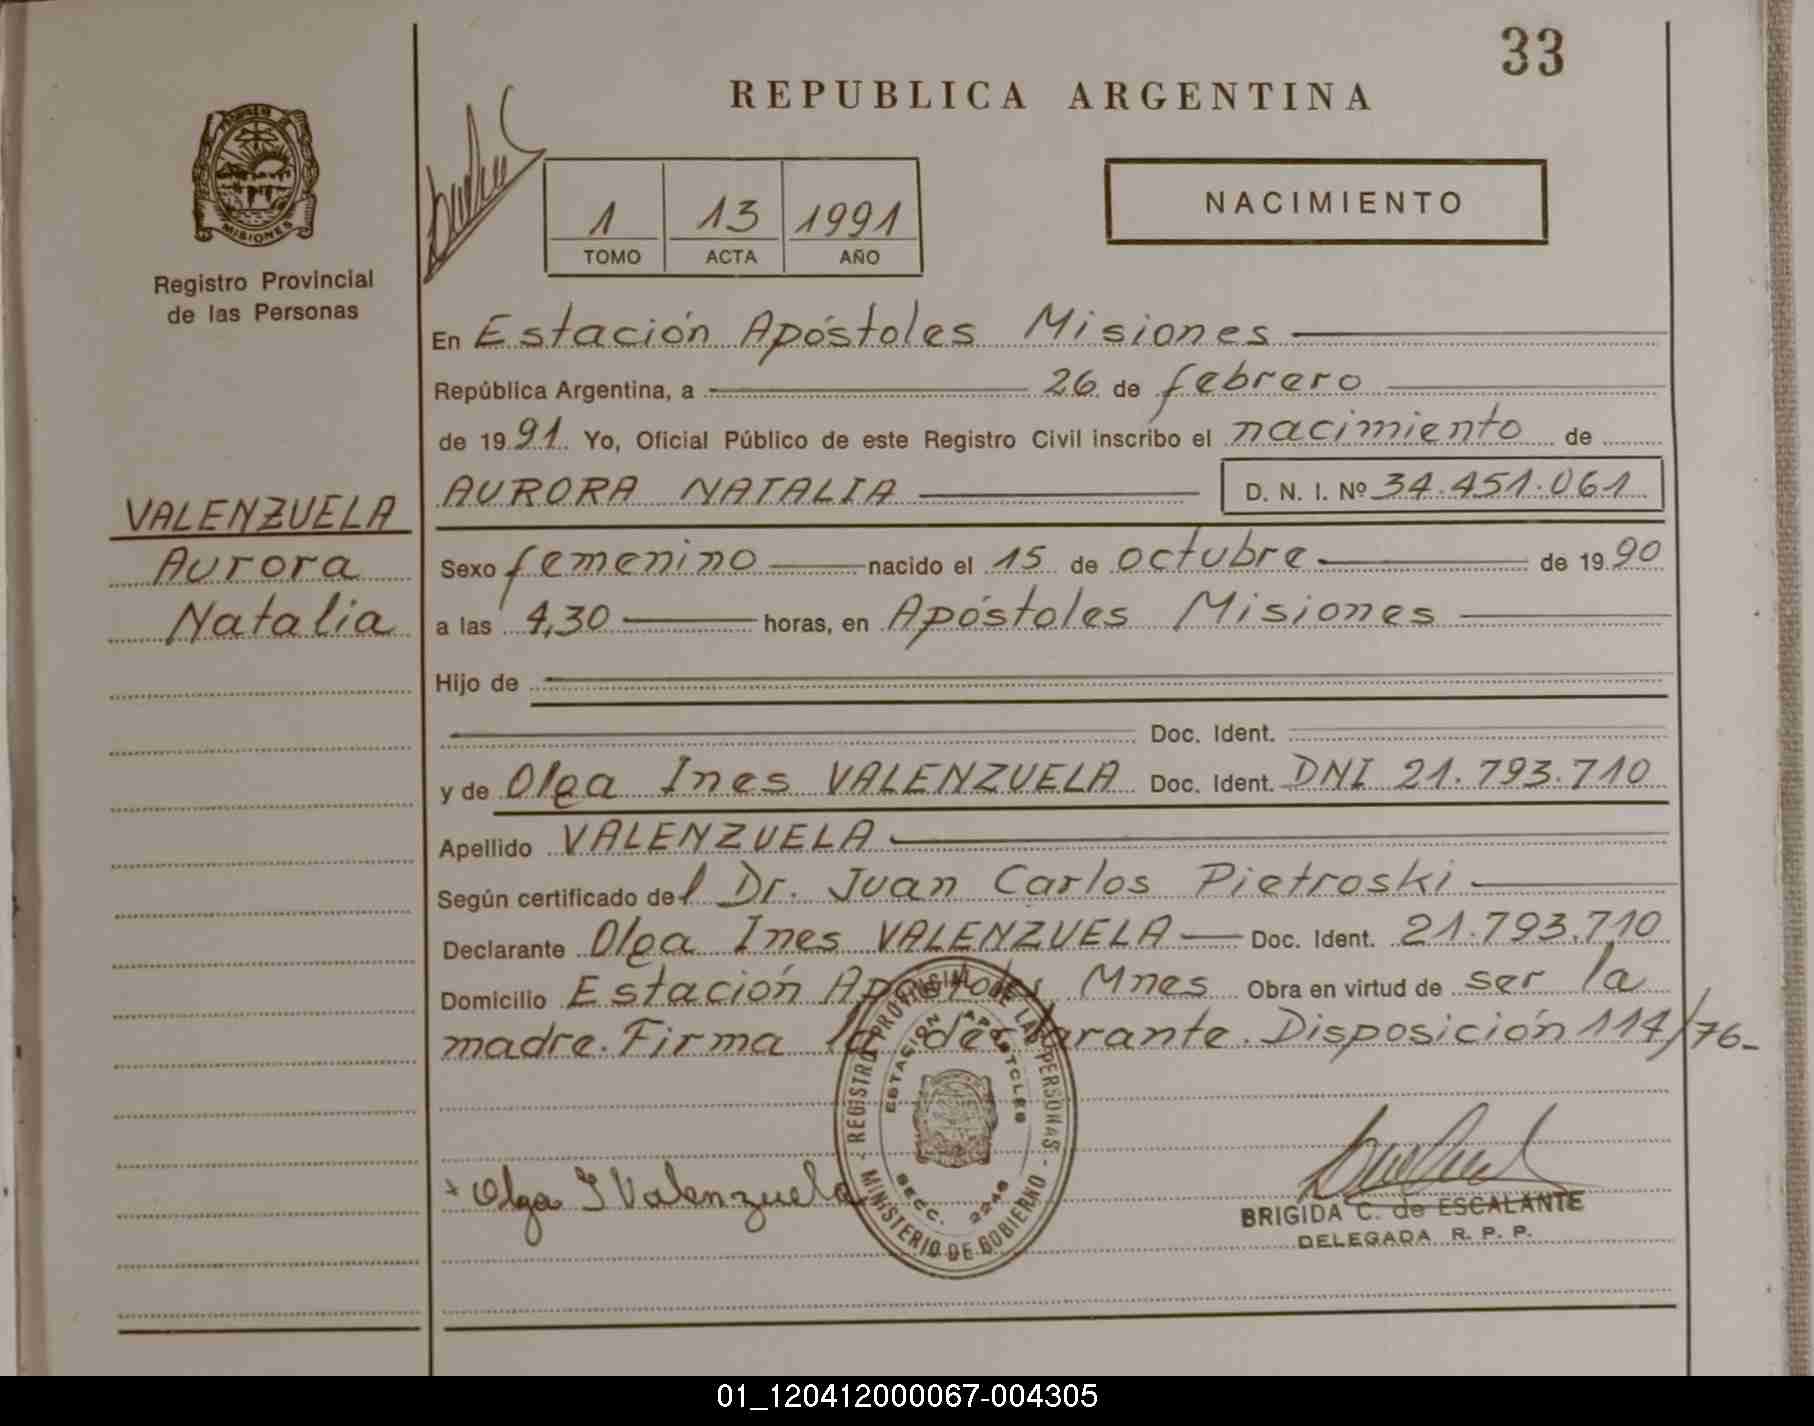 33
REPUBLICA ARGENTINA
MISIONES
Registro Provincial
de las Personas
1 13 1991
TOMO ACTA AÑO
NACIMIENTO
En Estación Apóstoles Misiones
República Argentina, a 26 de febrero
de 1991. Yo, Oficial Público de este Registro Civil inscribo el nacimiento de
AURORA NATALIA D. N. I. Nº 34.451.061
VALENZUELA
Aurora
Natalia
Sexo femenino nacido el 15 de octubre de 1990
a las 4,30 horas, en Apóstoles Misiones
Hijo de
Doc. Ident.
y de Olga Ines VALENZUELA Doc. Ident. DNI 21.793.710
Apellido VALENZUELA
Según certificado del Dr. Juan Carlos Pietroski
Declarante Olga Ines VALENZUELA Doc. Ident. 21.793.710
Domicilio Estación Apóstoles Mnes Obra en virtud de ser la
madre. Firma la declarante. Disposición 114/76-
REGISTRO PROVINCIAL DE LAS PERSONAS - MINISTERIO DE GOBIERNO -
ESTACION APOSTOLES
SECC. 2248
Olga I Valenzuela
BRIGIDA C. de ESCALANTE
DELEGADA R. P. P.
01_120412000067-004305